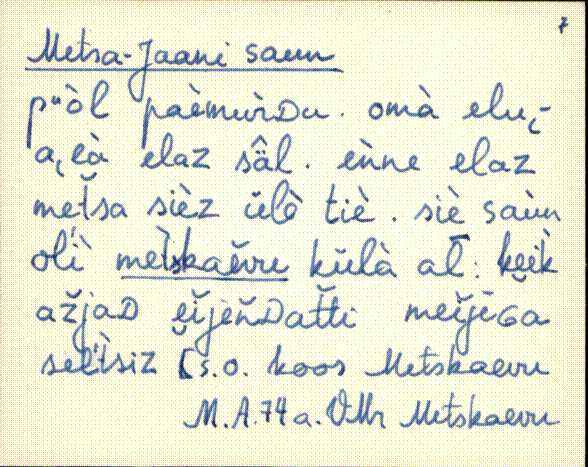 7
Metsa-Jaani saun
pùòl paèmùrDu. omà elu,-
a,eà elaz sâl. èǹne elaz
metsa sièz ǖlò tiè. siè saùn
olì mètskaĕvru kǖlà al̄: kĕik
ažjaD ĕĭjeňDat̆ti meĭjĕGa
sel̀tsiz [s.o. koos Metskaevru
M.A.74 a. VMr Metskaevru